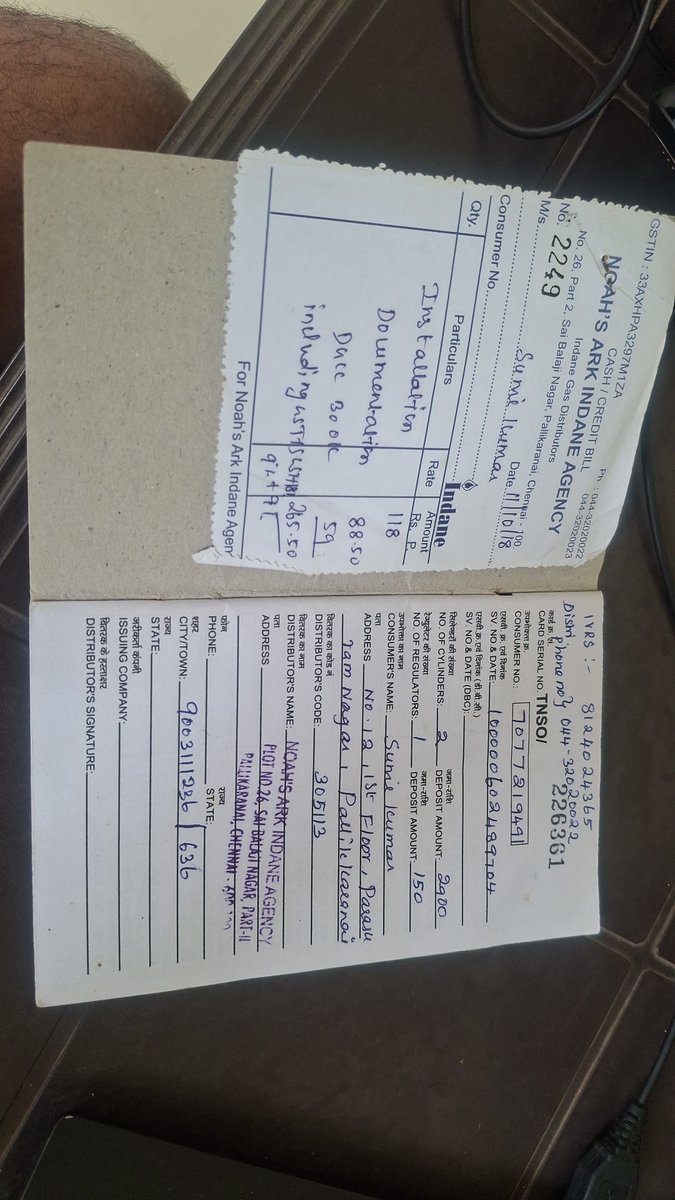 GSTIN : 33AXHPA3297M1ZA
Ph : 044-32020022
CASH / CREDIT BILL 044-32020023
NOAH'S ARK INDANE AGENCY
Indane Gas Distributors
No. 26, Part 2, Sai Balaji Nagar, Pallikaranai, Chennai - 100
No. 2249 Date 11/10/18
M/s. Sunil Kumar
Consumer No.
Indane
Qty. Particulars Rate Amount
Rs. P.
Installation 118
Documentation 88.50
DGCC Book 59
including GST 265.50
9%+9%
For Noah's Ark Indane Agen
IVRS :- 8124024365
Distri phone no} 044-32020022
कार्ड क्र. सं.
CARD SERIAL NO. TNSO/ 226361
उपभोक्ता क्र.
CONSUMER NO.: 7077219491
एसवी. क्र. एवं दिनांक
SV. NO. & DATE: 100000602489704
एसवी. क्र. एवं दिनांक (डी.बी.सी.)
SV. NO. & DATE (DBC):
सिलेण्डरों की संख्या जमा-राशि
NO. OF CYLINDERS: 2 DEPOSIT AMOUNT: 2900
रेग्युलेटर की संख्या जमा-राशि
NO. OF REGULATORS: 1 DEPOSIT AMOUNT: 150
उपभोक्ता का नाम
CONSUMER'S NAME: Sunil Kumar
पता
ADDRESS No. 12, 1st Floor, Parasu
ram Nagar, Pallikaranai
वितरक का कोड नं
DISTRIBUTOR'S CODE: 305113
वितरक का नाम
DISTRIBUTOR'S NAME: NOAH'S ARK INDANE AGENCY
पता
ADDRESS PLOT NO.26, SAI BALAJI NAGAR, PART-II
PALLIKARANAI, CHENNAI - 600 100
फोन राज्य
PHONE: STATE:
शहर
CITY/TOWN: 9003111236 / 636
राज्य
STATE:
जारीकर्ता कंपनी
ISSUING COMPANY:
वितरक के हस्ताक्षर
DISTRIBUTOR'S SIGNATURE: